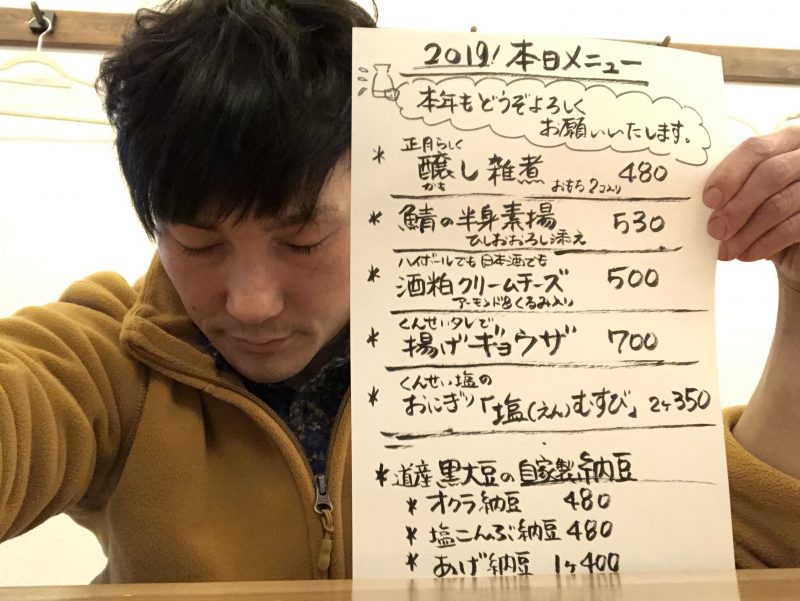 2019! 本日メニュー
本年もどうぞよろしく
お願いいたします。
* 正月らしく
醸し雑煮 480
かも おもち2コ入り
* 鯖の半身素揚 530
ひしおおろし添え
ハイボールでも日本酒でも
* 酒粕クリームチーズ 500
アーモンド&くるみ入り
くんせいタレで
* 揚げギョウザ 700
くんせい塩の
* おにぎり「塩(えん)むすび」2ヶ350
* 道産黒大豆の自家製納豆
* オクラ納豆 480
* 塩こんぶ納豆 480
* あげ納豆 1ヶ400